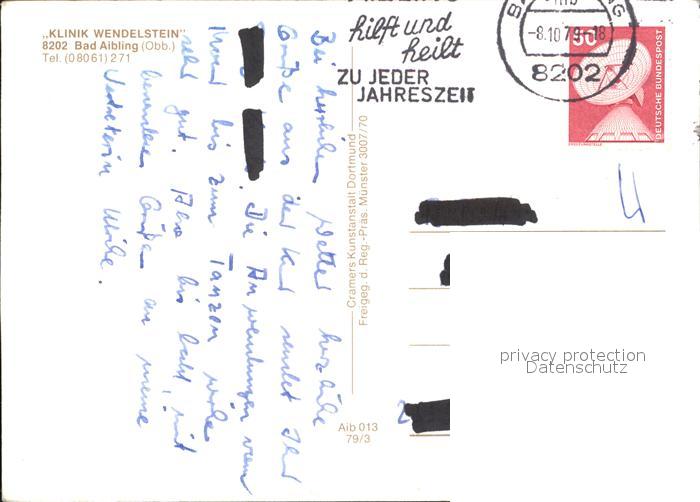 „KLINIK WENDELSTEIN"
8202 Bad Aibling (Obb.)
Tel. (08061) 271
Bei herrlichem Wetter herzliche
Grüße aus der Kur sendet Ihr
Die Anwendungen vom
Moor bis zum Tanzen
sehr gut. Also bis bald, mit
besonderen Grüßen an meine
Ulrike.
Cramers Kunstanstalt Dortmund
Freigeg. d. Reg.-Präs. Münster 3007/70
Aib 013
79/3
hilft und
heilt
ZU JEDER
JAHRESZEIT
-8.10.79-18
8202
50
DEUTSCHE BUNDESPOST
privacy protection
Datenschutz